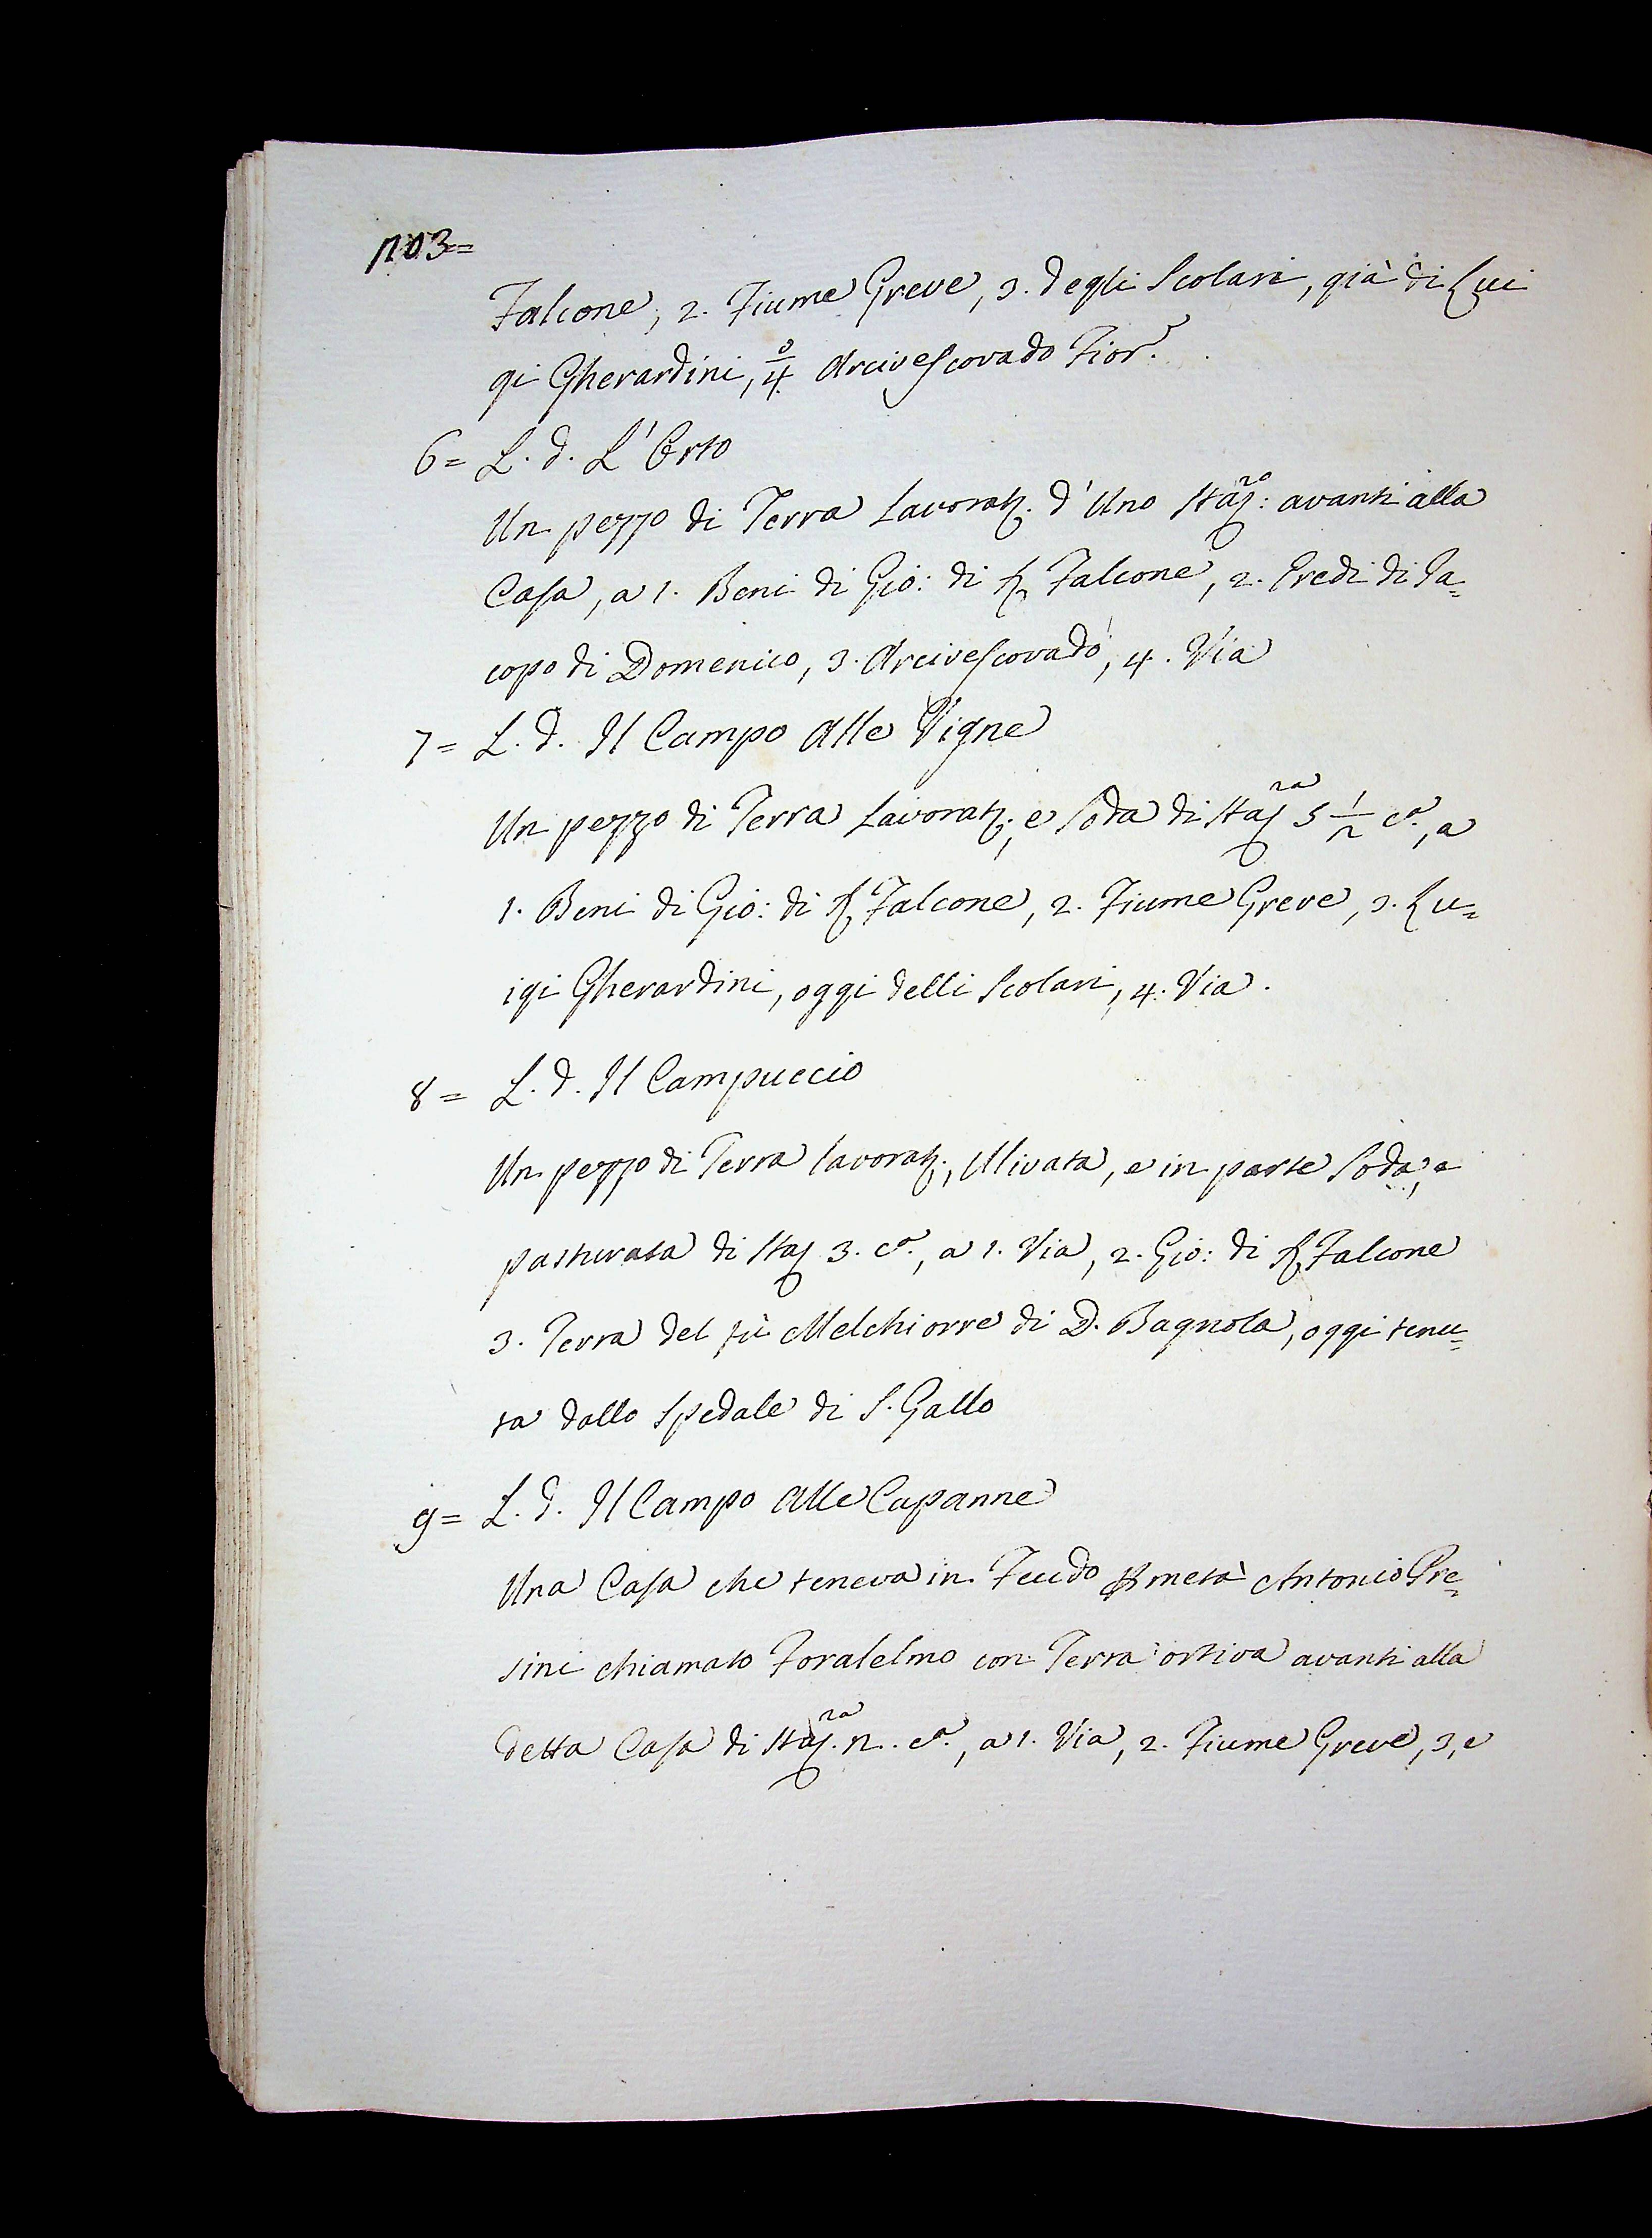 1203=
Falcone, 2. Fiume Greve, 3. degli Scolari, già di Lui
gi Gherardini, 4. Arcivescovado Fior.
6= L. d. L'Orto
Un pezzo di Terra Lavorat. d'Uno Staj.ro: avanti alla
Casa, a 1. Beni di Gio: di Falcone, 2. Eredi di Ja=
copo di Domenico, 3. Arcivescovado, 4. Via
7= L. d. Il Campo Alle Vigne
Un pezzo di Terra Lavorat., e Soda di Staj.ra 5 1/2 ca., a
1. Beni di Gio: di Falcone, 2. Fiume Greve, 3. Lu=
igi Gherardini, oggi delli Scolari, 4. Via.
8= L. d. Il Campuccio
Un pezzo di Terra lavorat., Ulivata, e in parte Soda, e
pasturata di Staj 3. ca., a 1. Via, 2. Gio: di Falcone
3. Terra del fù Melchiorre di D. Bagnola, oggi tenu=
ta dallo Spedale di S. Gallo
9= L. d. Il Campo Alle Capanne
Una Casa che teneva in Feudo p metà Antonio Pre=
sini chiamato Foralelmo con Terra ortiva avanti alla
detta Casa di Staj.ra 2. ca., a 1. Via, 2. Fiume Greve, 3, e